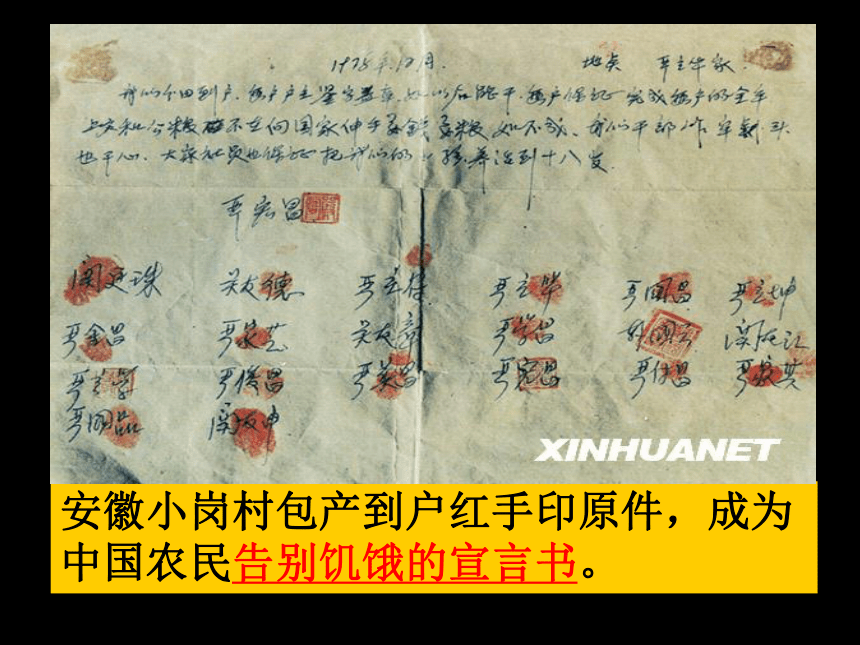 1978年12月. 地点 严立华家.
我们分田到户.每户户主签字盖章.如以后能干.每户保证完成每户的全年
上交和公粮.不在向国家伸手要钱要粮.如不成、我们干部作牢刹头
也干心、大家社员也保证把我们的小孩养活到十八岁.
严宏昌
关廷珠 关友德 严立符 严立华 严国昌 严立坤
严金昌 严家芝 关友章 严学昌 韩国云 关友江
严立学 严俊昌 严美昌 严宏昌 严付昌 严家其
严国品 关友申
XINHUANET
安徽小岗村包产到户红手印原件，成为
中国农民告别饥饿的宣言书。